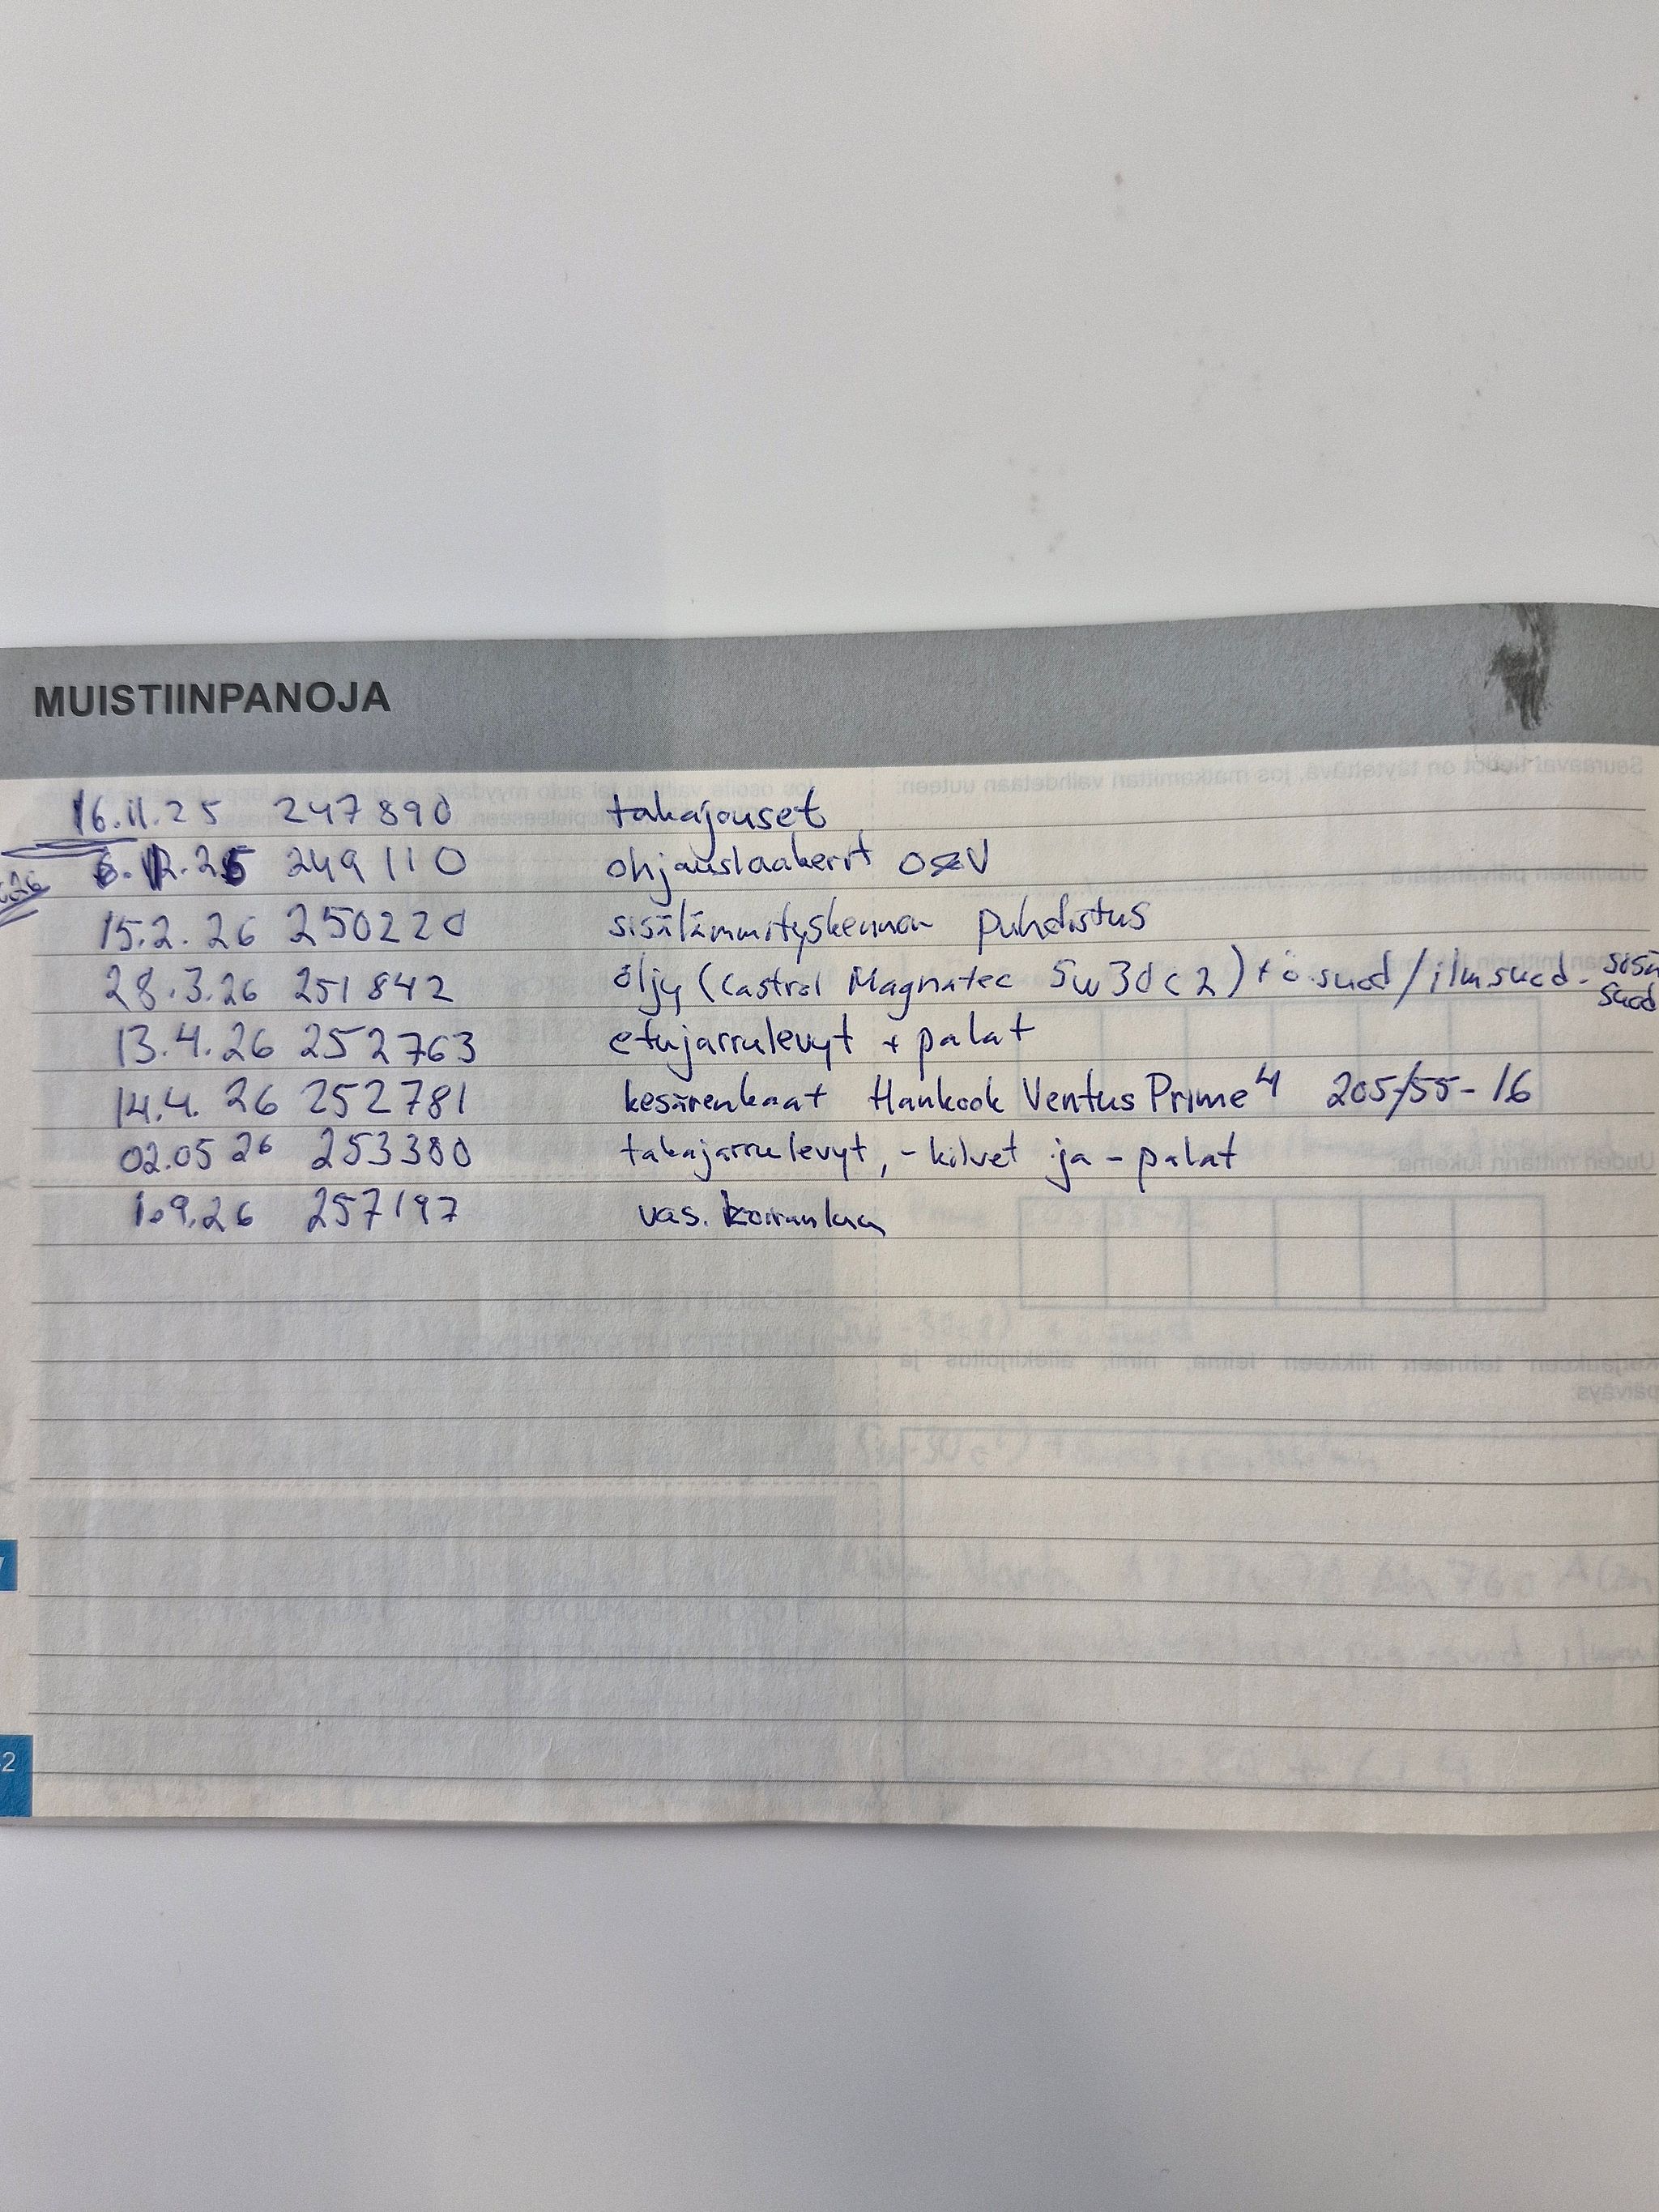 MUISTIINPANOJA
16.11.25 247890 takajouset
6.12.25 249110 ohjauslaakerit O&V
15.2.26 250220 sisälämmityskennon puhdistus
28.3.26 251842 öljy (Castrol Magnatec 5w30 c2) + ö.suod / ilmsuod. sisä suod
13.4.26 252763 etujarrulevyt + palat
14.4.26 252781 kesärenkaat Hankook Ventus Prime4 205/55-16
02.05 26 253380 takajarrulevyt, -kilvet ja -palat
1.9.26 257197 vas. koiranluu